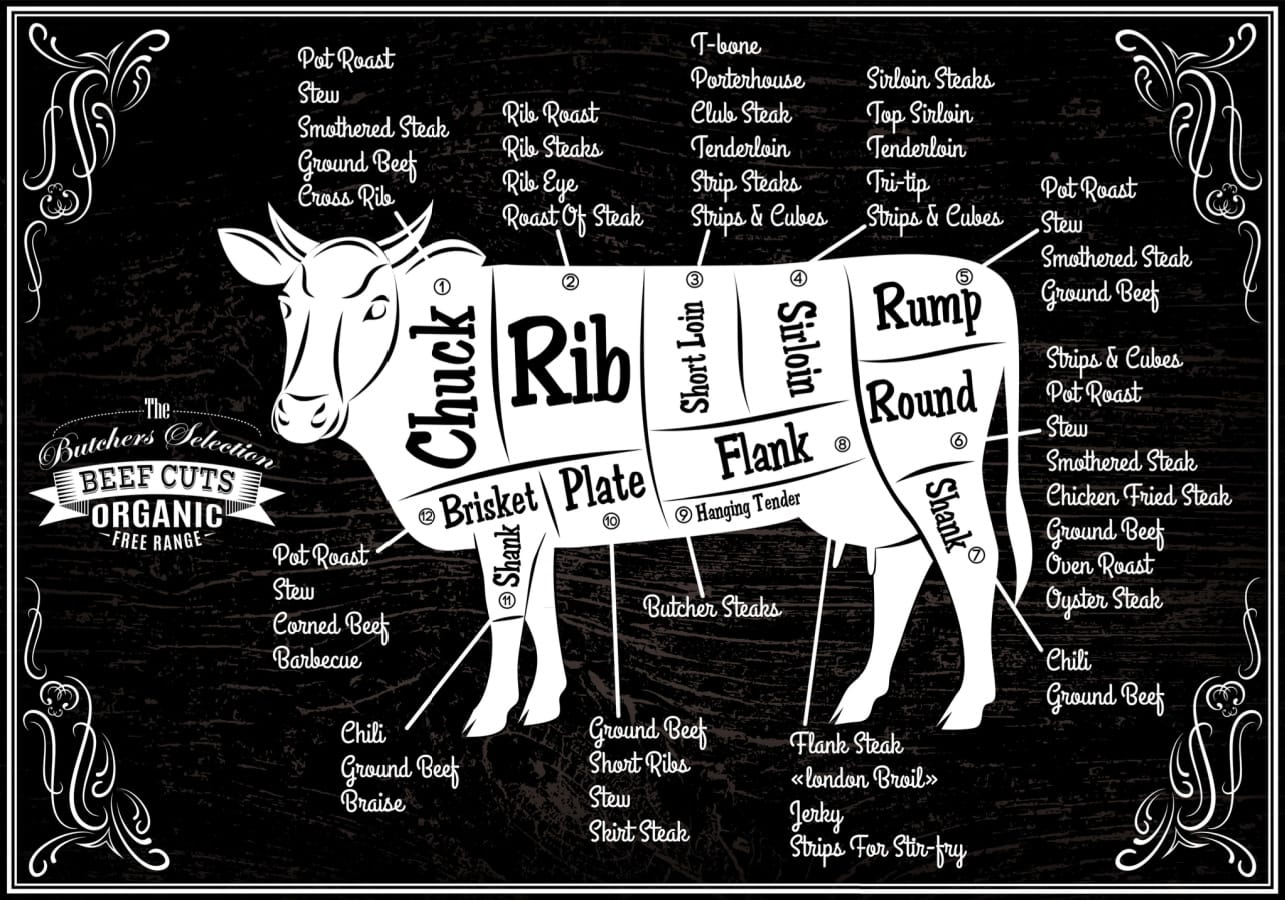 Pot Roast
Stew
Smothered Steak
Ground Beef
Cross Rib
Rib Roast
Rib Steaks
Rib Eye
Roast Of Steak
T-bone
Porterhouse
Club Steak
Tenderloin
Strip Steaks
Strips & Cubes
Sirloin Steaks
Top Sirloin
Tenderloin
Tri-tip
Strips & Cubes
Pot Roast
Stew
Smothered Steak
Ground Beef
① Chuck
② Rib
③ Short Loin
④ Sirloin
⑤ Rump
Round ⑥
Shank ⑦
Flank ⑧
⑨ Hanging Tender
Plate ⑩
Shank ⑪
⑫ Brisket
Strips & Cubes
Pot Roast
Stew
Smothered Steak
Chicken Fried Steak
Ground Beef
Oven Roast
Oyster Steak
The
Butchers Selection
BEEF CUTS
ORGANIC
FREE RANGE
Pot Roast
Stew
Corned Beef
Barbecue
Butcher Steaks
Chili
Ground Beef
Chili
Ground Beef
Braise
Ground Beef
Short Ribs
Stew
Skirt Steak
Flank Steak
«london Broil»
Jerky
Strips For Stir-fry